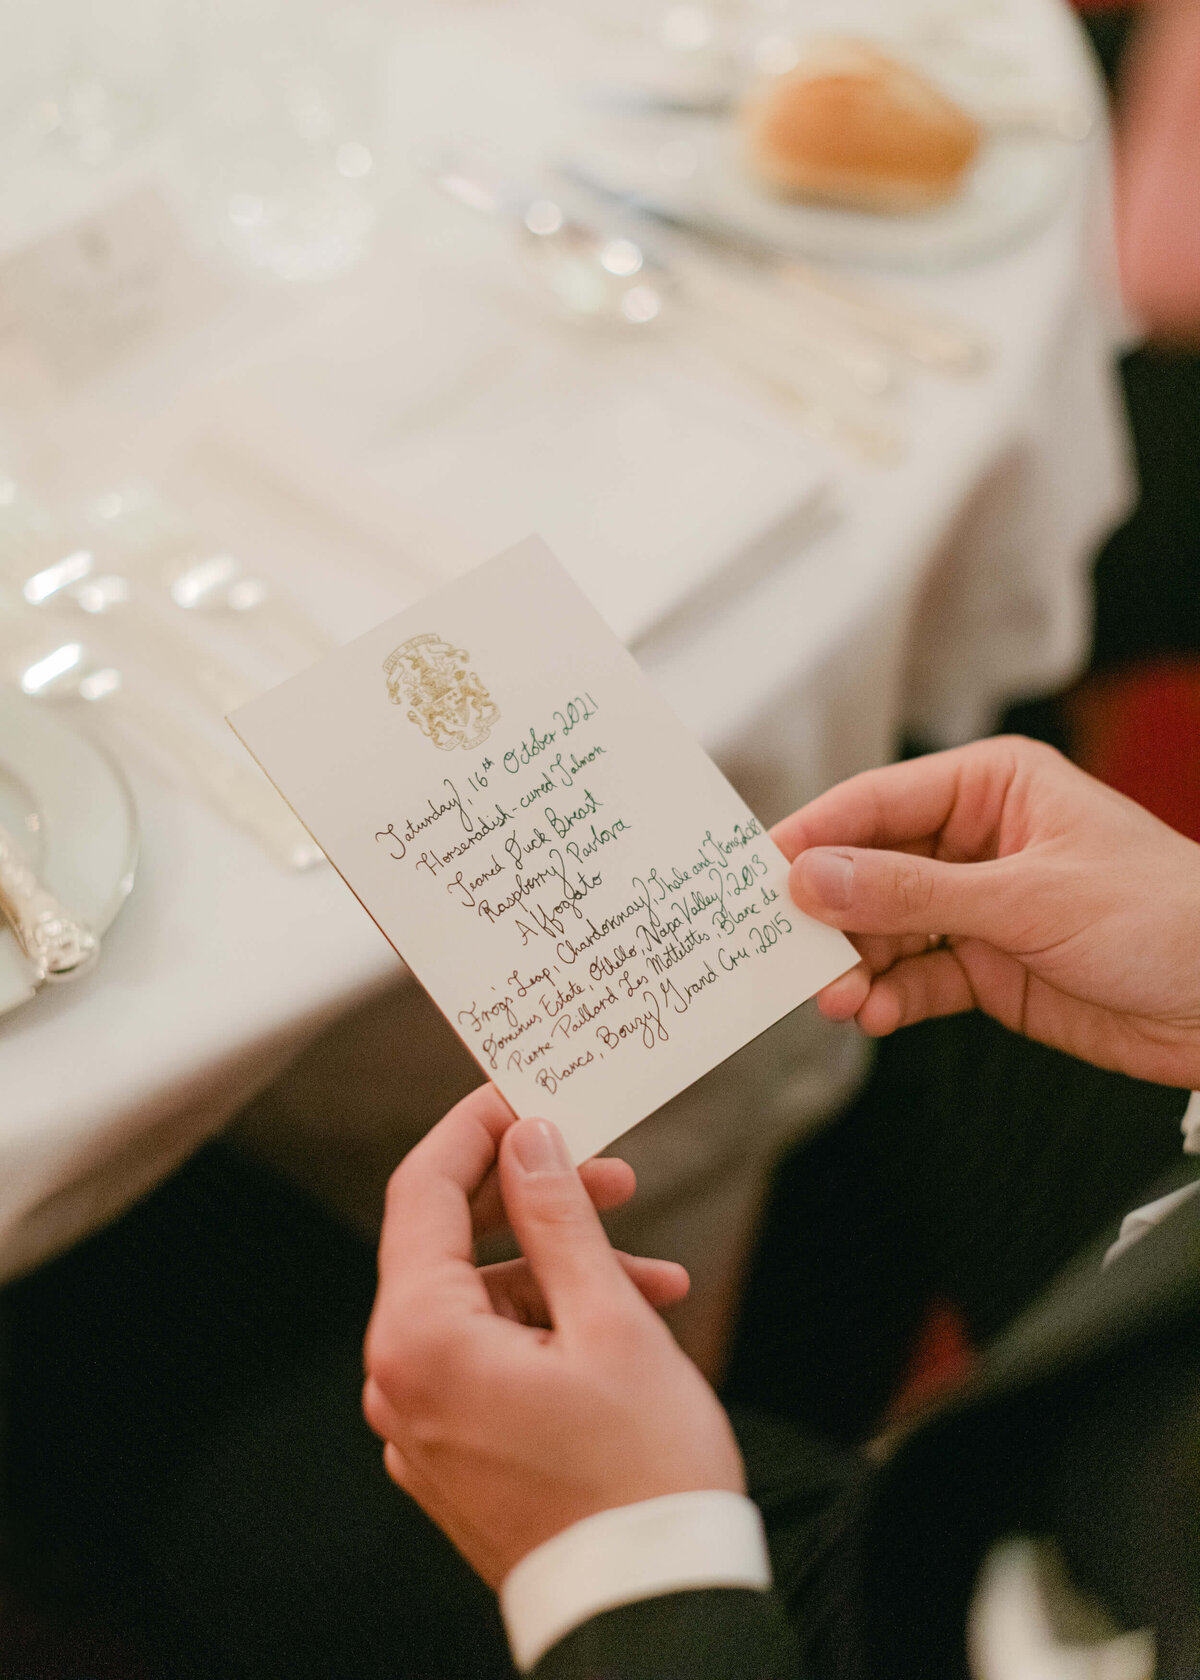 Saturday, 16th October 2021
Horseradish-cured Salmon
Seared Duck Breast
Raspberry Pavlova
Affogato
Frog's Leap, Chardonnay, Shale and Stone, 2018
Dominus Estate, Othello, Napa Valley, 2013
Pierre Paillard Les Mottelettes, Blanc de
Blancs, Bouzy Grand Cru, 2015